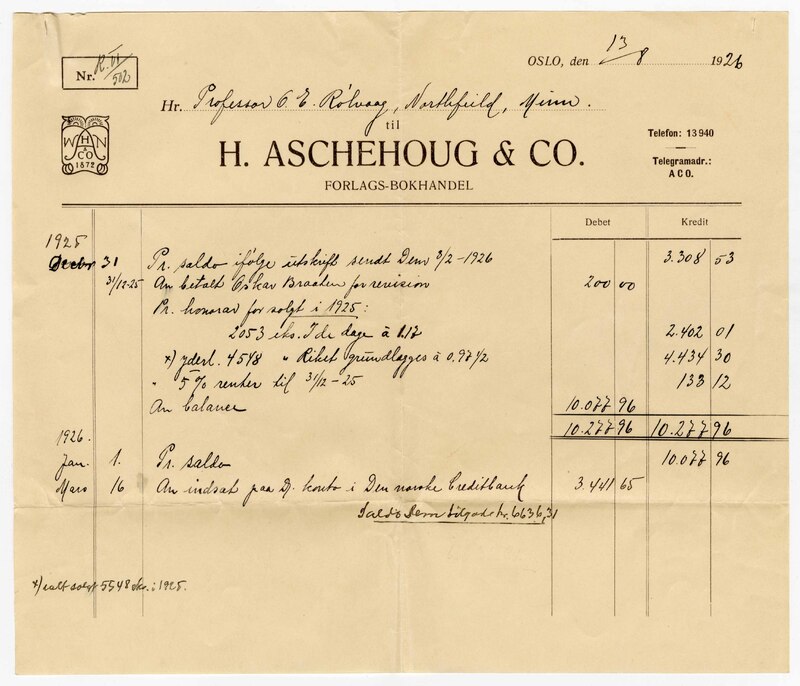 Nr. R. VI/502
OSLO, den 13/8 1926
Hr. Professor O. E. Rölvaag, Northfield, Minn.
til
W H N & CO 1872
H. ASCHEHOUG & CO.
FORLAGS-BOKHANDEL
Telefon: 13940
Telegramadr.: ACO.
Debet Kredit
1925
Decbr 31 Pr. saldo ifölge utskrift sendt Dem 3/2-1926 3.308 53
31/12-25 An betalt Oskar Braaten for revision 200 00
Pr. honorar for solgt i 1925:
2053 eks. I de dage à 1.17 2.402 01
x) yderl. 4548 " Riket grundlægges à 0,97 1/2 4.434 30
" 5% renter til 31/12-25 133 12
An balance 10.077 96
10.277 96 10.277 96
1926.
Jan. 1. Pr. saldo 10.077 96
Mars 16 An indsat paa D. konto i Den norske Creditbank 3.441 65
Saldo Dem tilgode kr. 6636,31
x) ialt solgt 5548 eks. i 1925.